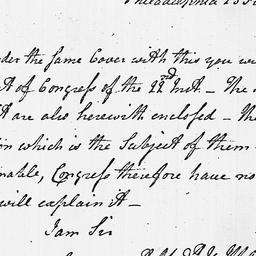 Philadelphia 23
der the same Cover with this you wi
t of Congress of the 22nd Inst — The
t are also herewith enclosed — The
on which is the Subject of them
nable, Congress therefore have no
will explain it —
I am Sir